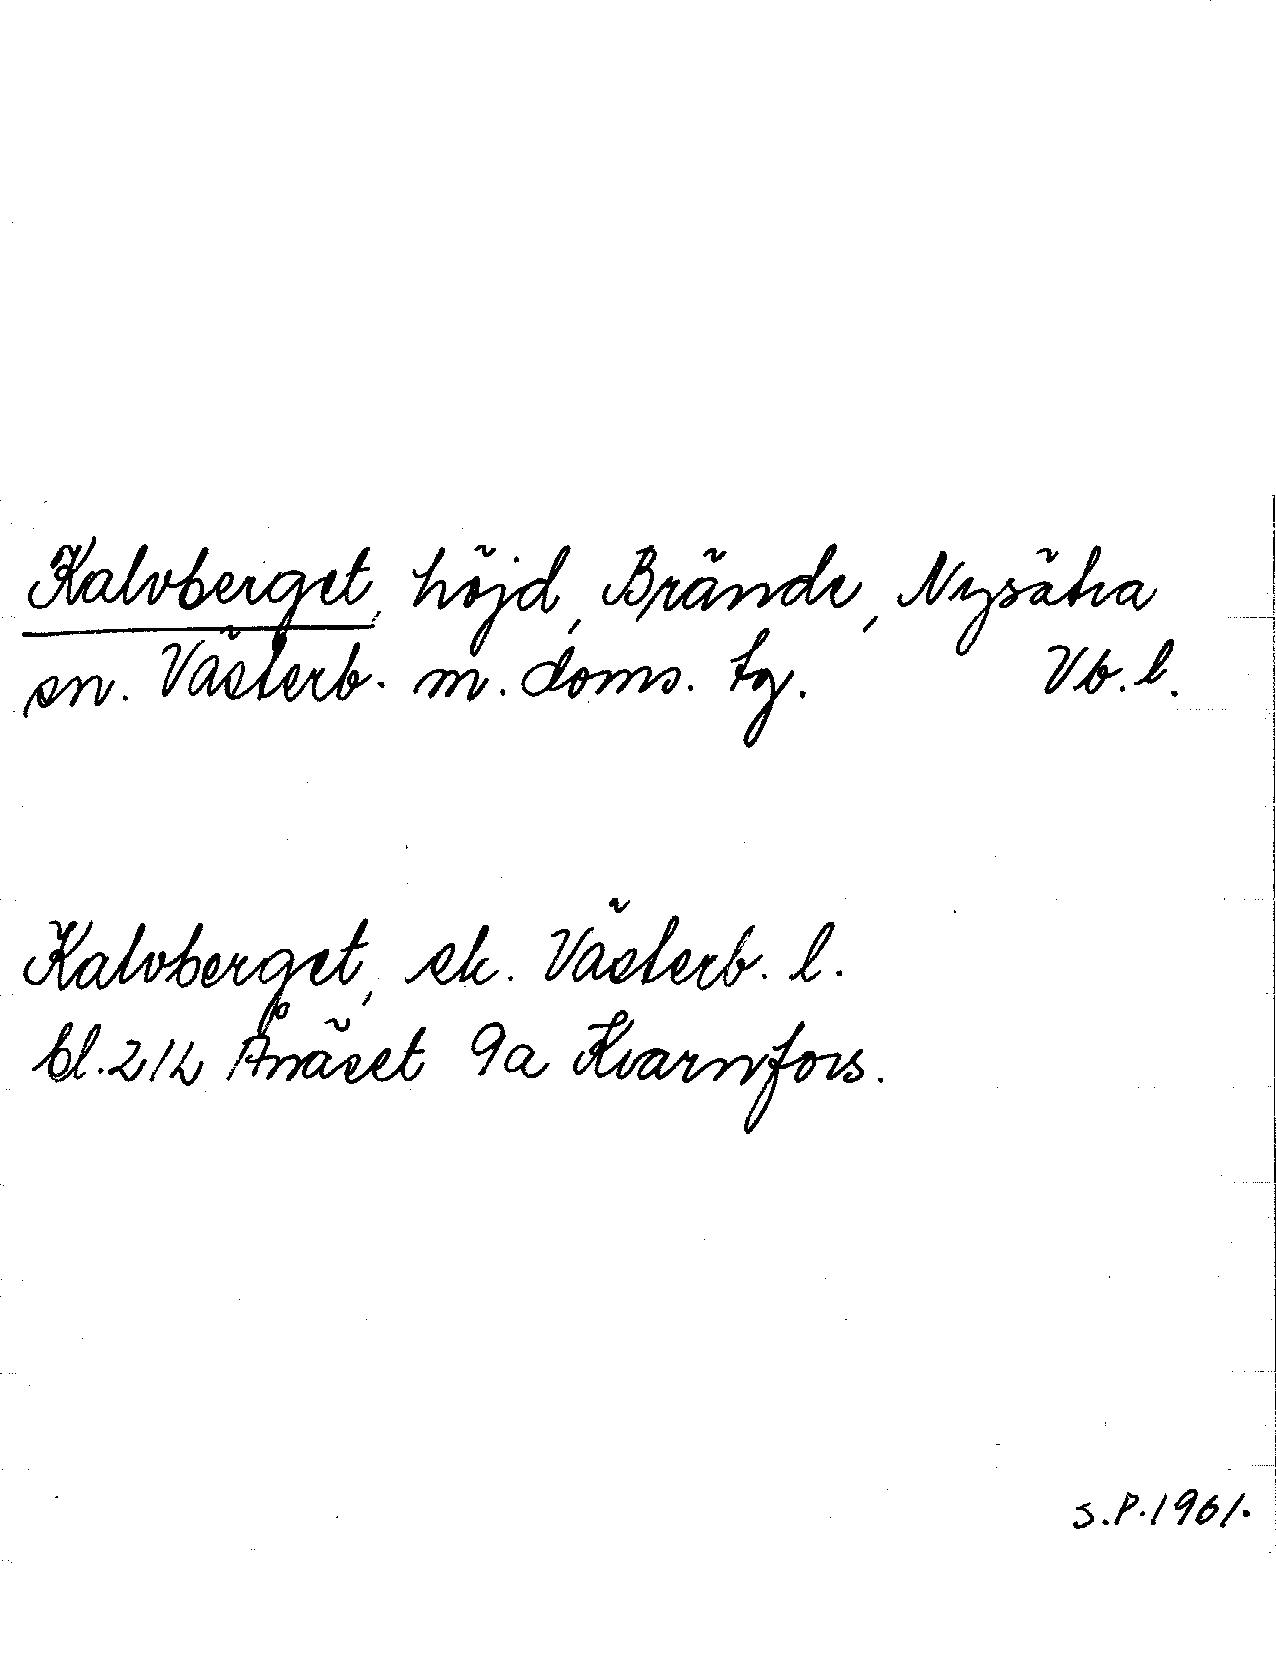 Kalvberget, höjd, Brände, Nysätra
sn. Västerb. m. doms. tg. Vb. l.
Kalvberget, ek. Västerb. l.
bl. 21L Ånäset 9a Kvarnfors.
S.P. 1961.